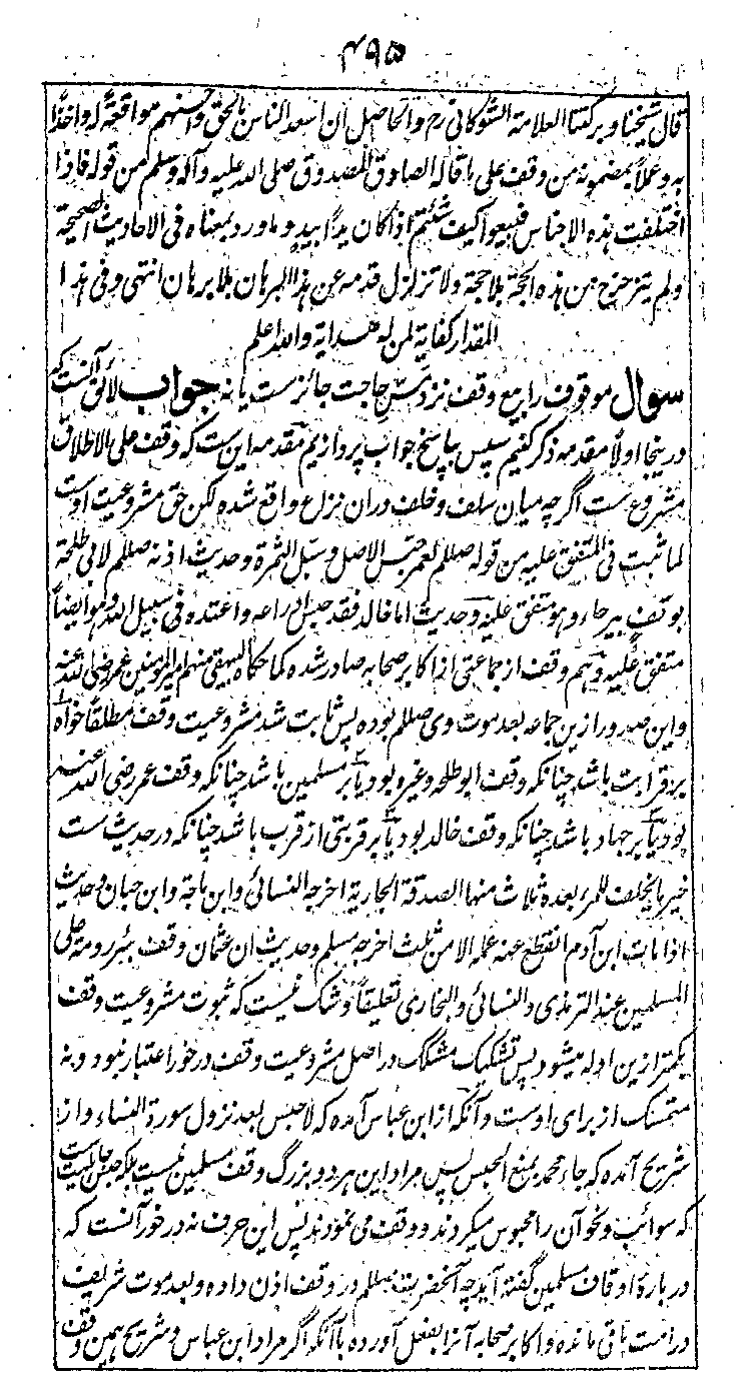 ۴۹۵
قال شیخنا وبرکتنا العلامة الشوکانی رح والحاصل ان اسعد الناس بالحق واحسنهم موافقة له واخذا
به وعملا بمضمونه من وقف علی ما قاله الصادق المصدوق صلی الله علیه وآله وسلم من قوله فاذا
اختلفت هذه الاجناس فبیعوا کیف شئتم اذا کان یدا بید وما ورد بمعناه فی الاحادیث الصحیحة
ولم یتزحزح من هذه الحجة بلا حجة ولا تزلزل قدمه عن هذا البرهان بلا برهان انتهی وفی هذا
المقدار کفایة لمن له هدایة والله اعلم
سوال موقوف را بیع وقف نزد مس حاجت جائزست یا نه جواب لائق آنست که
درینجا اولا مقدمه ذکر کنیم سپس بپاسخ جواب پردازیم مقدمه این ست که وقف علی الاطلاق
مشروع ست اگرچه میان سلف وخلف دران نزاع واقع شده لکن حق مشروعیت اوست
لما ثبت فی المتفق علیه من قوله صللم لعمر حبس الاصل وسبل الثمرة وحدیث اذنه صللم لابی طلحة
بوقف بیرحاء وهو متفق علیه وحدیث اما خالد فقد حبس ادراعه واعتده فی سبیل الله وهو ایضا
متفق علیه وهم وقف از جماعتی از اکابر صحابه صادر شده کما حکاه البیهقی منهم امیر المؤمنین عمر رضی الله عنه
واین صدور ازین جماعه بعد موت وی صللم بوده پس ثابت شد مشروعیت وقف مطلقا خواه
بر قرابت باشد چنانکه وقف ابوطلحه وغیره بود یا بر مسلمین باشد چنانکه وقف عمر رضی الله عنه
بود یا بر جهاد باشد چنانکه وقف خالد بود یا بر قربتی از قرب باشد چنانکه در حدیث ست
خیر ما یخلف للمرء بعده ثلاث منها الصدقة الجاریة اخرجه النسائی وابن ماجة وابن حبان وحدیث
اذا مات ابن آدم انقطع عنه عمله الا من ثلث اخرجه مسلم وحدیث ان عثمان وقف بئر رومة علی
المسلمین عند الترمذی والنسائی والبخاری تعلیقا وشک نیست که ثبوت مشروعیت وقف
بکمتر ازین ادله میشود پس تشکیک مشکک در اصل مشروعیت وقف در خور اعتبار نبود و نه
متمسک از برای اوست وآنکه از ابن عباس آمده که لا حبس بعد نزول سورة النساء واز
شریح آمده که جاء محمد بمنع الحبس پس مراد این هر دو بزرگ وقف مسلمین نیست بلکه حبس جاهلیت ست
که سوائب ونحو آن را محبوس میکردند ووقف می نمودند پس این حرف نه در خور آنست که
در بارۀ اوقاف مسلمین گفته آید چه آنحضرت صللم در وقف اذن داده وبعد موت شریف
در امت باقی مانده واکابر صحابه آنرا بفعل آورده با آنکه اگر مراد ابن عباس وشریح همین وقف